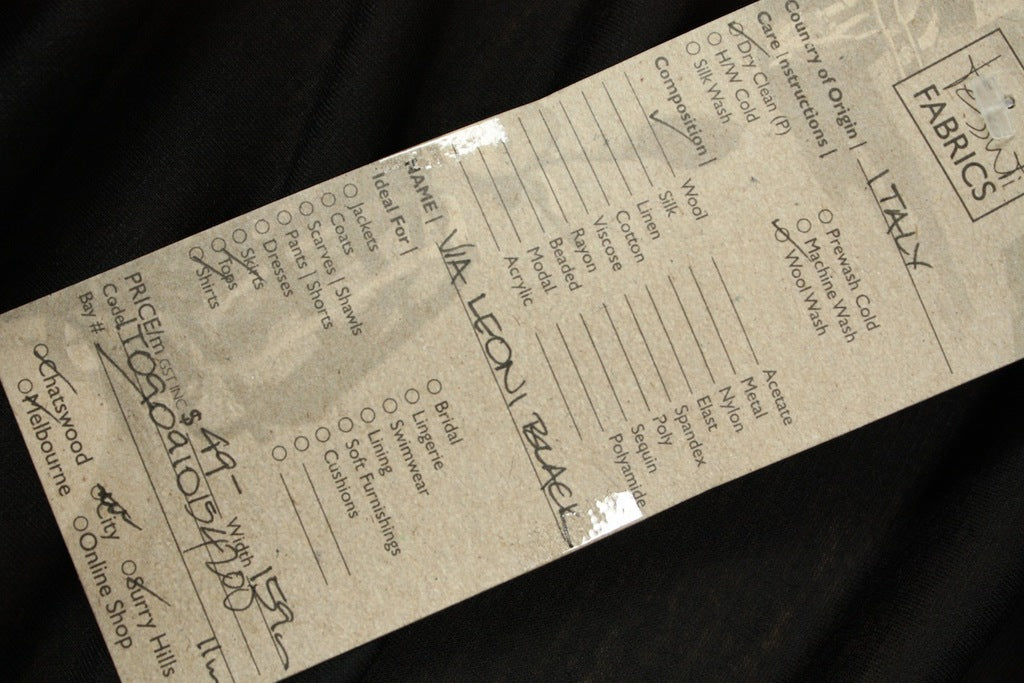 Tessuti
FABRICS
Country of Origin | ITALY
Care Instructions |
Dry Clean (P)
H/W Cold
Silk Wash
Prewash Cold
Machine Wash
Wool Wash
Composition |
✓ Wool
Silk
Linen
Cotton
Viscose
Rayon
Beaded
Modal
Acrylic
Acetate
Metal
Nylon
Elast
Spandex
Poly
Sequin
Polyamide
NAME | VIA LEONI BLACK
Ideal For |
Jackets
Coats
Scarves | Shawls
Pants | Shorts
Dresses
Skirts
Tops
Shirts
Bridal
Lingerie
Swimwear
Lining
Soft Furnishings
Cushions
PRICE/m GST INC $49- Width 159c
Code
Bay # 11m
Chatswood City Surry Hills
Melbourne Online Shop